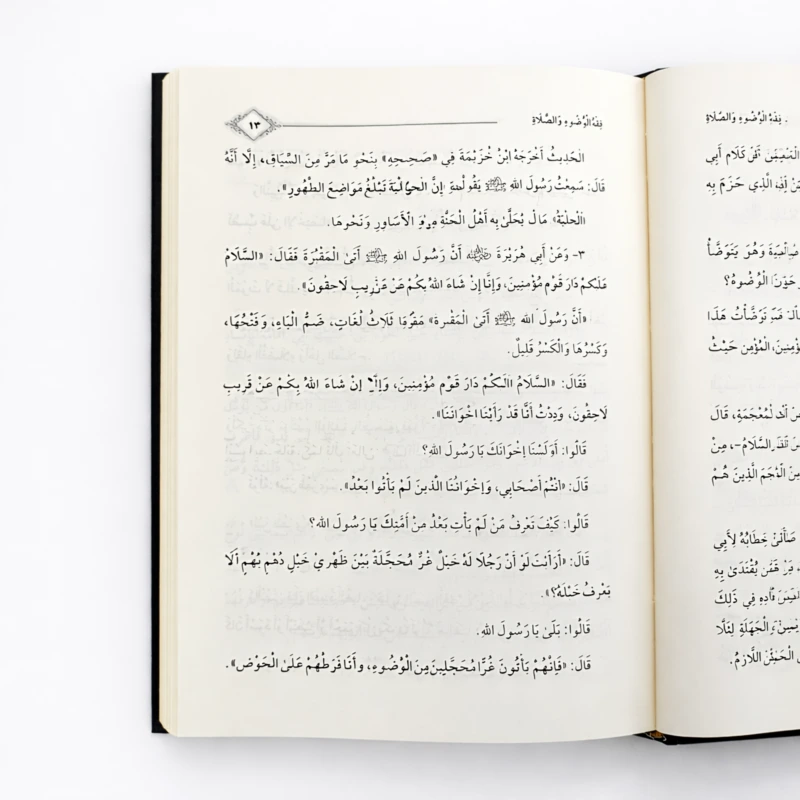 فِقْهُ الْوُضُوءِ وَالصَّلَاةِ
١٣
الْحَدِيثُ أَخْرَجَهُ ابْنُ خُزَيْمَةَ فِي «صَحِيحِهِ» بِنَحْوِ مَا مَرَّ مِنَ السِّيَاقِ، إِلَّا أَنَّهُ
قَالَ: سَمِعْتُ رَسُولَ اللهِ ﷺ يَقُولُ: «إِنَّ الْحِلْيَةَ تَبْلُغُ مَوَاضِعَ الطَّهُورِ».
«الْحِلْيَةُ» مَا يُحَلَّىٰ بِهِ أَهْلُ الْجَنَّةِ مِنَ الْأَسَاوِرِ وَنَحْوِهَا.
٣- وَعَنْ أَبِي هُرَيْرَةَ ﵁ أَنَّ رَسُولَ اللهِ ﷺ أَتَىٰ الْمَقْبُرَةَ فَقَالَ: «السَّلَامُ
عَلَيْكُمْ دَارَ قَوْمٍ مُؤْمِنِينَ، وَإِنَّا إِنْ شَاءَ اللهُ بِكُمْ عَنْ قَرِيبٍ لَاحِقُونَ».
«أَنَّ رَسُولَ اللهِ ﷺ أَتَىٰ الْمَقْبُرَةَ» ثَلَاثُ لُغَاتٍ، ضَمُّ الْبَاءِ، وَفَتْحُهَا،
وَكَسْرُهَا وَالْكَسْرُ قَلِيلٌ.
فَقَالَ: «السَّلَامُ عَلَيْكُمْ دَارَ قَوْمٍ مُؤْمِنِينَ، وَإِنَّا إِنْ شَاءَ اللهُ بِكُمْ عَنْ قَرِيبٍ
لَاحِقُونَ، وَدِدْتُ أَنَّا قَدْ رَأَيْنَا إِخْوَانَنَا».
قَالُوا: أَوَلَسْنَا إِخْوَانَكَ يَا رَسُولَ اللهِ؟
قَالَ: «أَنْتُمْ أَصْحَابِي، وَإِخْوَانُنَا الَّذِينَ لَمْ يَأْتُوا بَعْدُ».
قَالُوا: كَيْفَ تَعْرِفُ مَنْ لَمْ يَأْتِ بَعْدُ مِنْ أُمَّتِكَ يَا رَسُولَ اللهِ؟
قَالَ: «أَرَأَيْتَ لَوْ أَنَّ رَجُلًا لَهُ خَيْلٌ غُرٌّ مُحَجَّلَةٌ بَيْنَ ظَهْرَيْ خَيْلٍ دُهْمٍ بُهْمٍ أَلَا
يَعْرِفُ خَيْلَهُ؟».
قَالُوا: بَلَىٰ يَا رَسُولَ اللهِ.
قَالَ: «فَإِنَّهُمْ يَأْتُونَ غُرًّا مُحَجَّلِينَ مِنَ الْوُضُوءِ، وَأَنَا فَرَطُهُمْ عَلَىٰ الْحَوْضِ».
فِقْهُ الْوُضُوءِ وَالصَّلَاةِ
كَلَام أَبِي
الَّذِي حَزَمَ بِهِ
وَهُوَ يَتَوَضَّأُ
الْوُضُوءُ؟
تَوَضَّأْتُ هَذَا
الْمُؤْمِنِ حَيْثُ
قَالَ
السَّلَامُ-، مِنْ
الَّذِينَ هُمْ
خِطَابُهُ لِأَبِي
يُقْتَدَىٰ بِهِ
فِي ذَلِكَ
الْجَهَلَةِ لِئَلَّا
اللَّازِمُ.